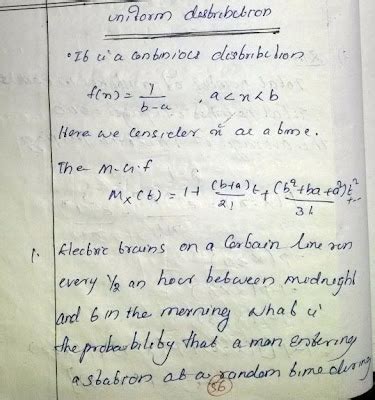 uniform distribution
• It is a continious distribution
f(x) = 1/(b-a) , a < x < b
Here we consider x as above.
The m.g.f
Mx(t) = 1 + (b+a)t/2! + (b²+ba+a²)t²/3! + ...
1. Electric trains on a Certain Line run
every 1/2 an hour between midnight
and 6 in the morning what is
the probability that a man entering
a station at a random time during
36